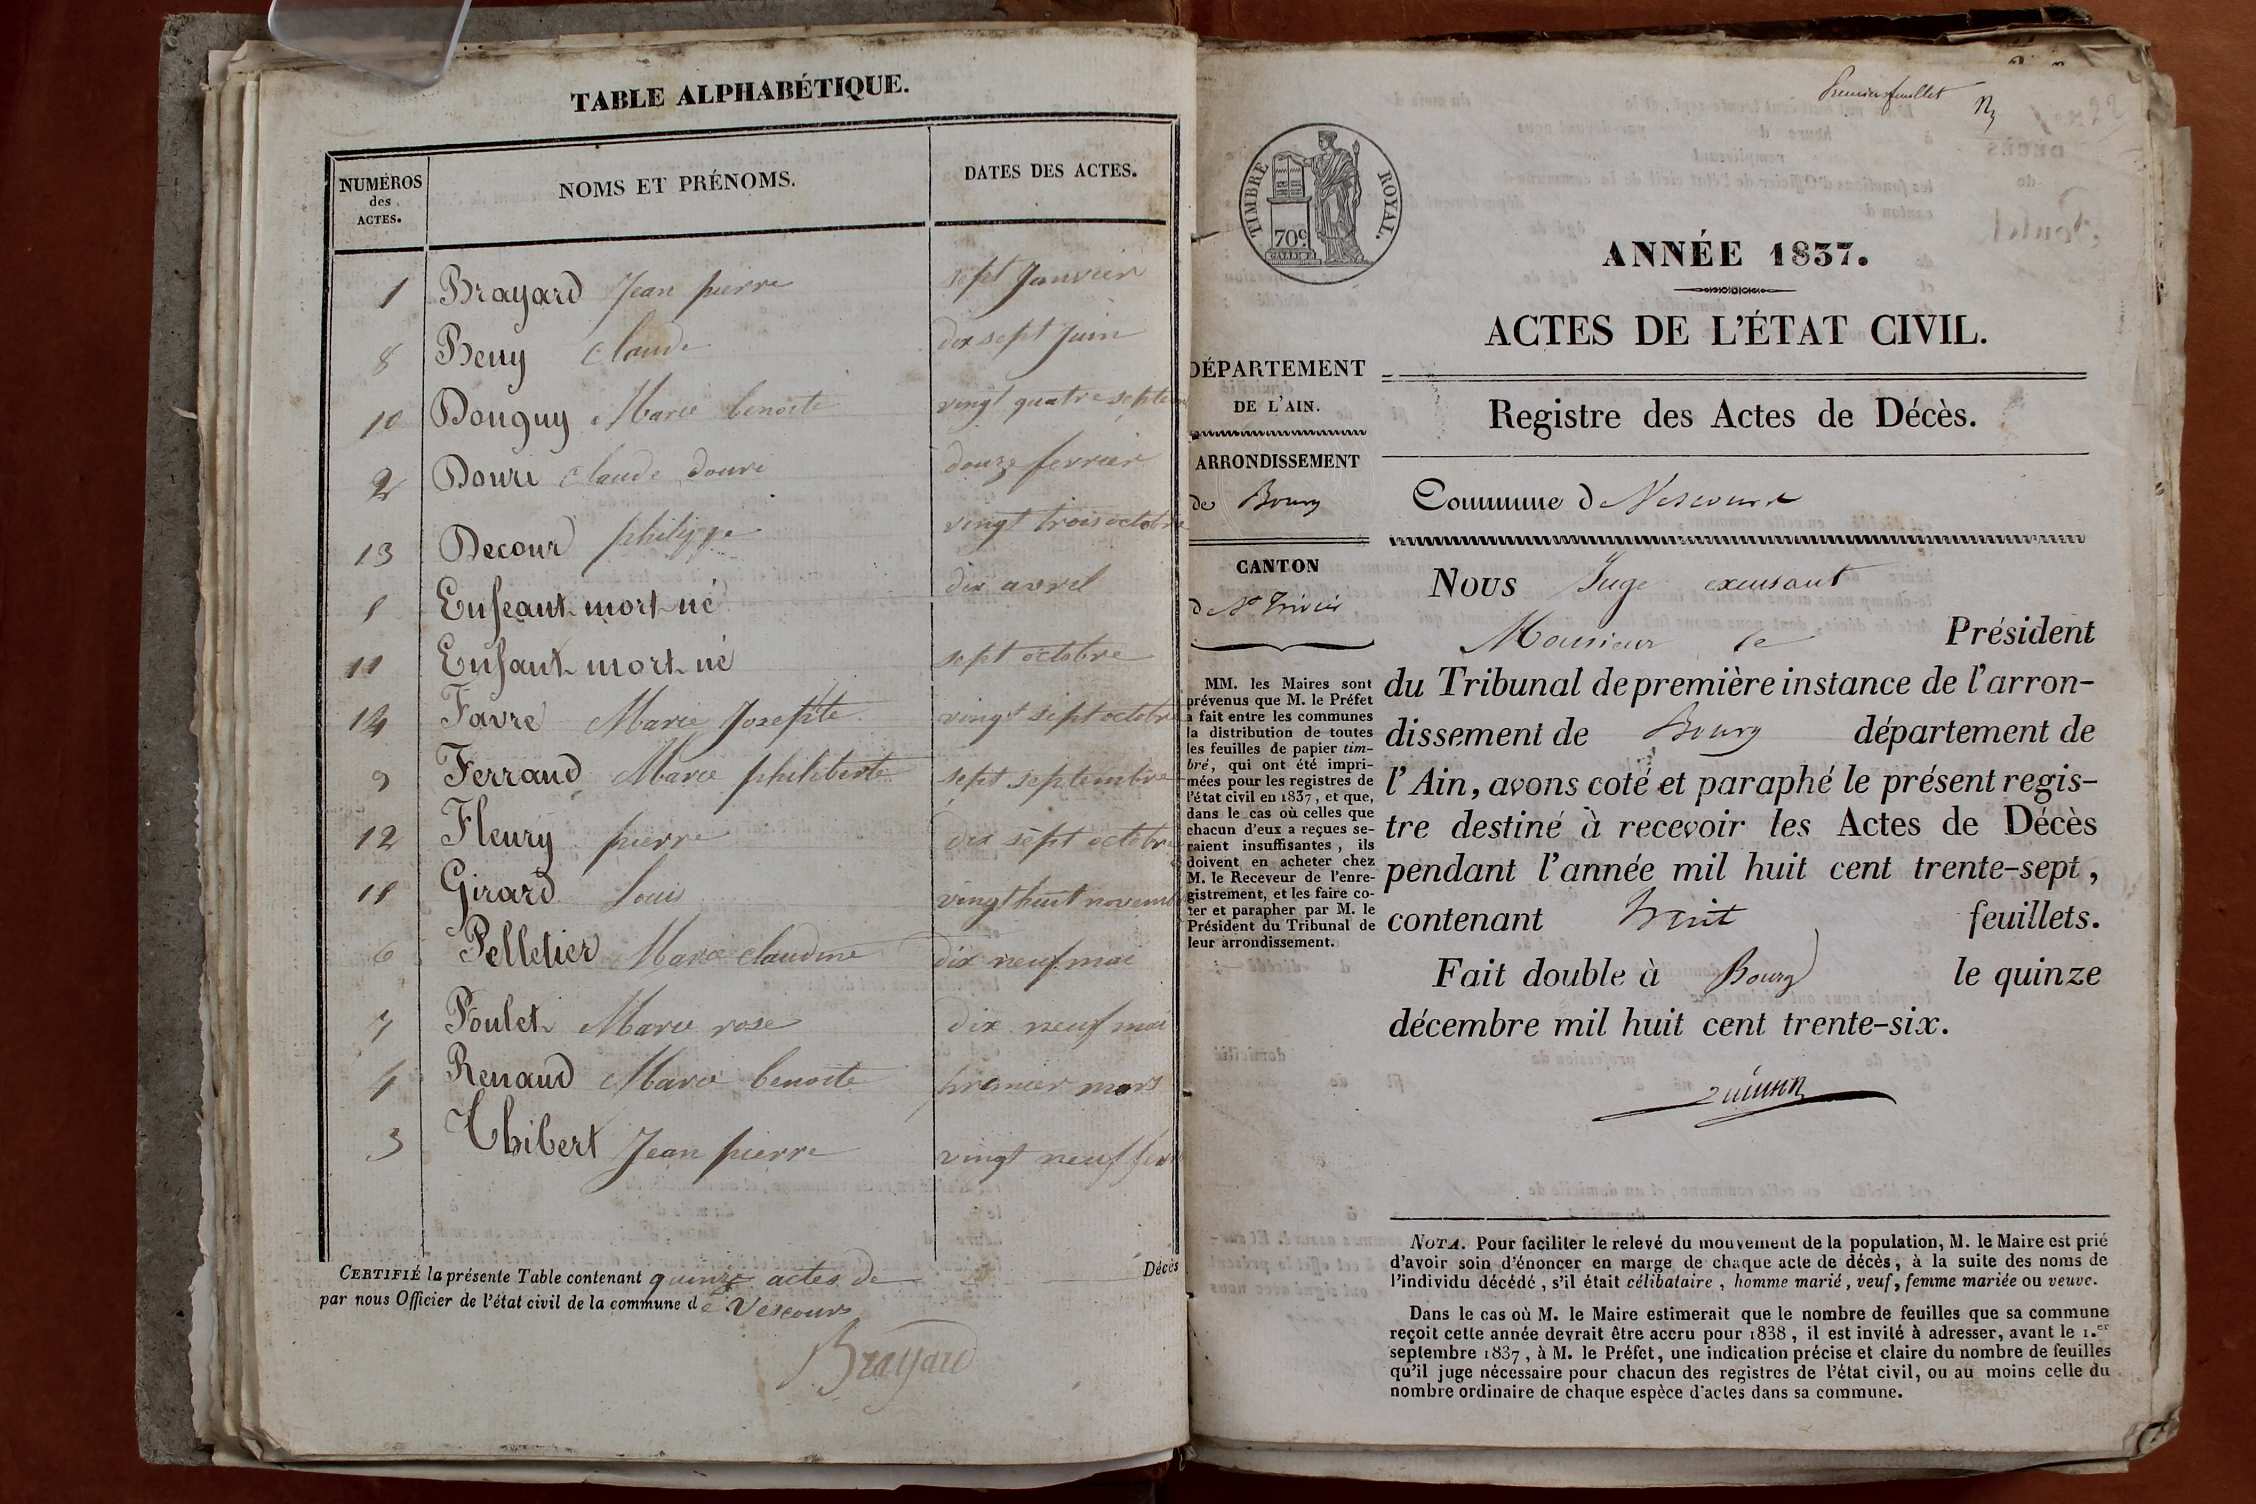 TABLE ALPHABÉTIQUE.
NUMÉROS des ACTES.
NOMS ET PRÉNOMS.
DATES DES ACTES.
1 Brayard Jean pierre sept Janvier
8 Beny Claude dix sept Juin
10 Donguy Marie benoite vingt quatre septem
2 Doure Claude doure douze fevrier
13 Decour philippe vingt trois octobre
5 Enfeant mort né dix avril
11 Enfant mort né sept octobre
14 Favre Marie Josephte vingt sept octobre
9 Ferraud Marie philiberte sept septembre
12 Fleury pierre dix sept octobre
15 Girard Louis vingt huit novemb
6 Pelletier Marie claudine dix neuf mai
7 Poulet Marie rose dix neuf mai
4 Renaud Marie benoite premier mars
3 Thibert Jean pierre vingt neuf fev
CERTIFIÉ la présente Table contenant quinze actes de Décès
par nous Officier de l'état civil de la commune de Vescours
Brayard
Premier feuillet
TIMBRE ROYAL.
70c
ANNÉE 1837.
ACTES DE L'ÉTAT CIVIL.
Registre des Actes de Décès.
DÉPARTEMENT
DE L'AIN.
ARRONDISSEMENT
de Bourg
CANTON
d St Trivier
MM. les Maires sont
prévenus que M. le Préfet
a fait entre les communes
la distribution de toutes
les feuilles de papier tim-
bré, qui ont été impri-
mées pour les registres de
l'état civil en 1837, et que,
dans le cas où celles que
chacun d'eux a reçues se-
raient insuffisantes, ils
doivent en acheter chez
M. le Receveur de l'enre-
gistrement, et les faire co-
ter et parapher par M. le
Président du Tribunal de
leur arrondissement.
Commune d Vescours
Nous Juge excusant
Monsieur le Président
du Tribunal de première instance de l'arron-
dissement de Bourg département de
l'Ain, avons coté et paraphé le présent regis-
tre destiné à recevoir les Actes de Décès
pendant l'année mil huit cent trente-sept,
contenant huit feuillets.
Fait double à Bourg le quinze
décembre mil huit cent trente-six.
NOTA. Pour faciliter le relevé du mouvement de la population, M. le Maire est prié
d'avoir soin d'énoncer en marge de chaque acte de décès, à la suite des noms de
l'individu décédé, s'il était célibataire, homme marié, veuf, femme mariée ou veuve.
Dans le cas où M. le Maire estimerait que le nombre de feuilles que sa commune
reçoit cette année devrait être accru pour 1838, il est invité à adresser, avant le 1.er
septembre 1837, à M. le Préfet, une indication précise et claire du nombre de feuilles
qu'il juge nécessaire pour chacun des registres de l'état civil, ou au moins celle du
nombre ordinaire de chaque espèce d'actes dans sa commune.